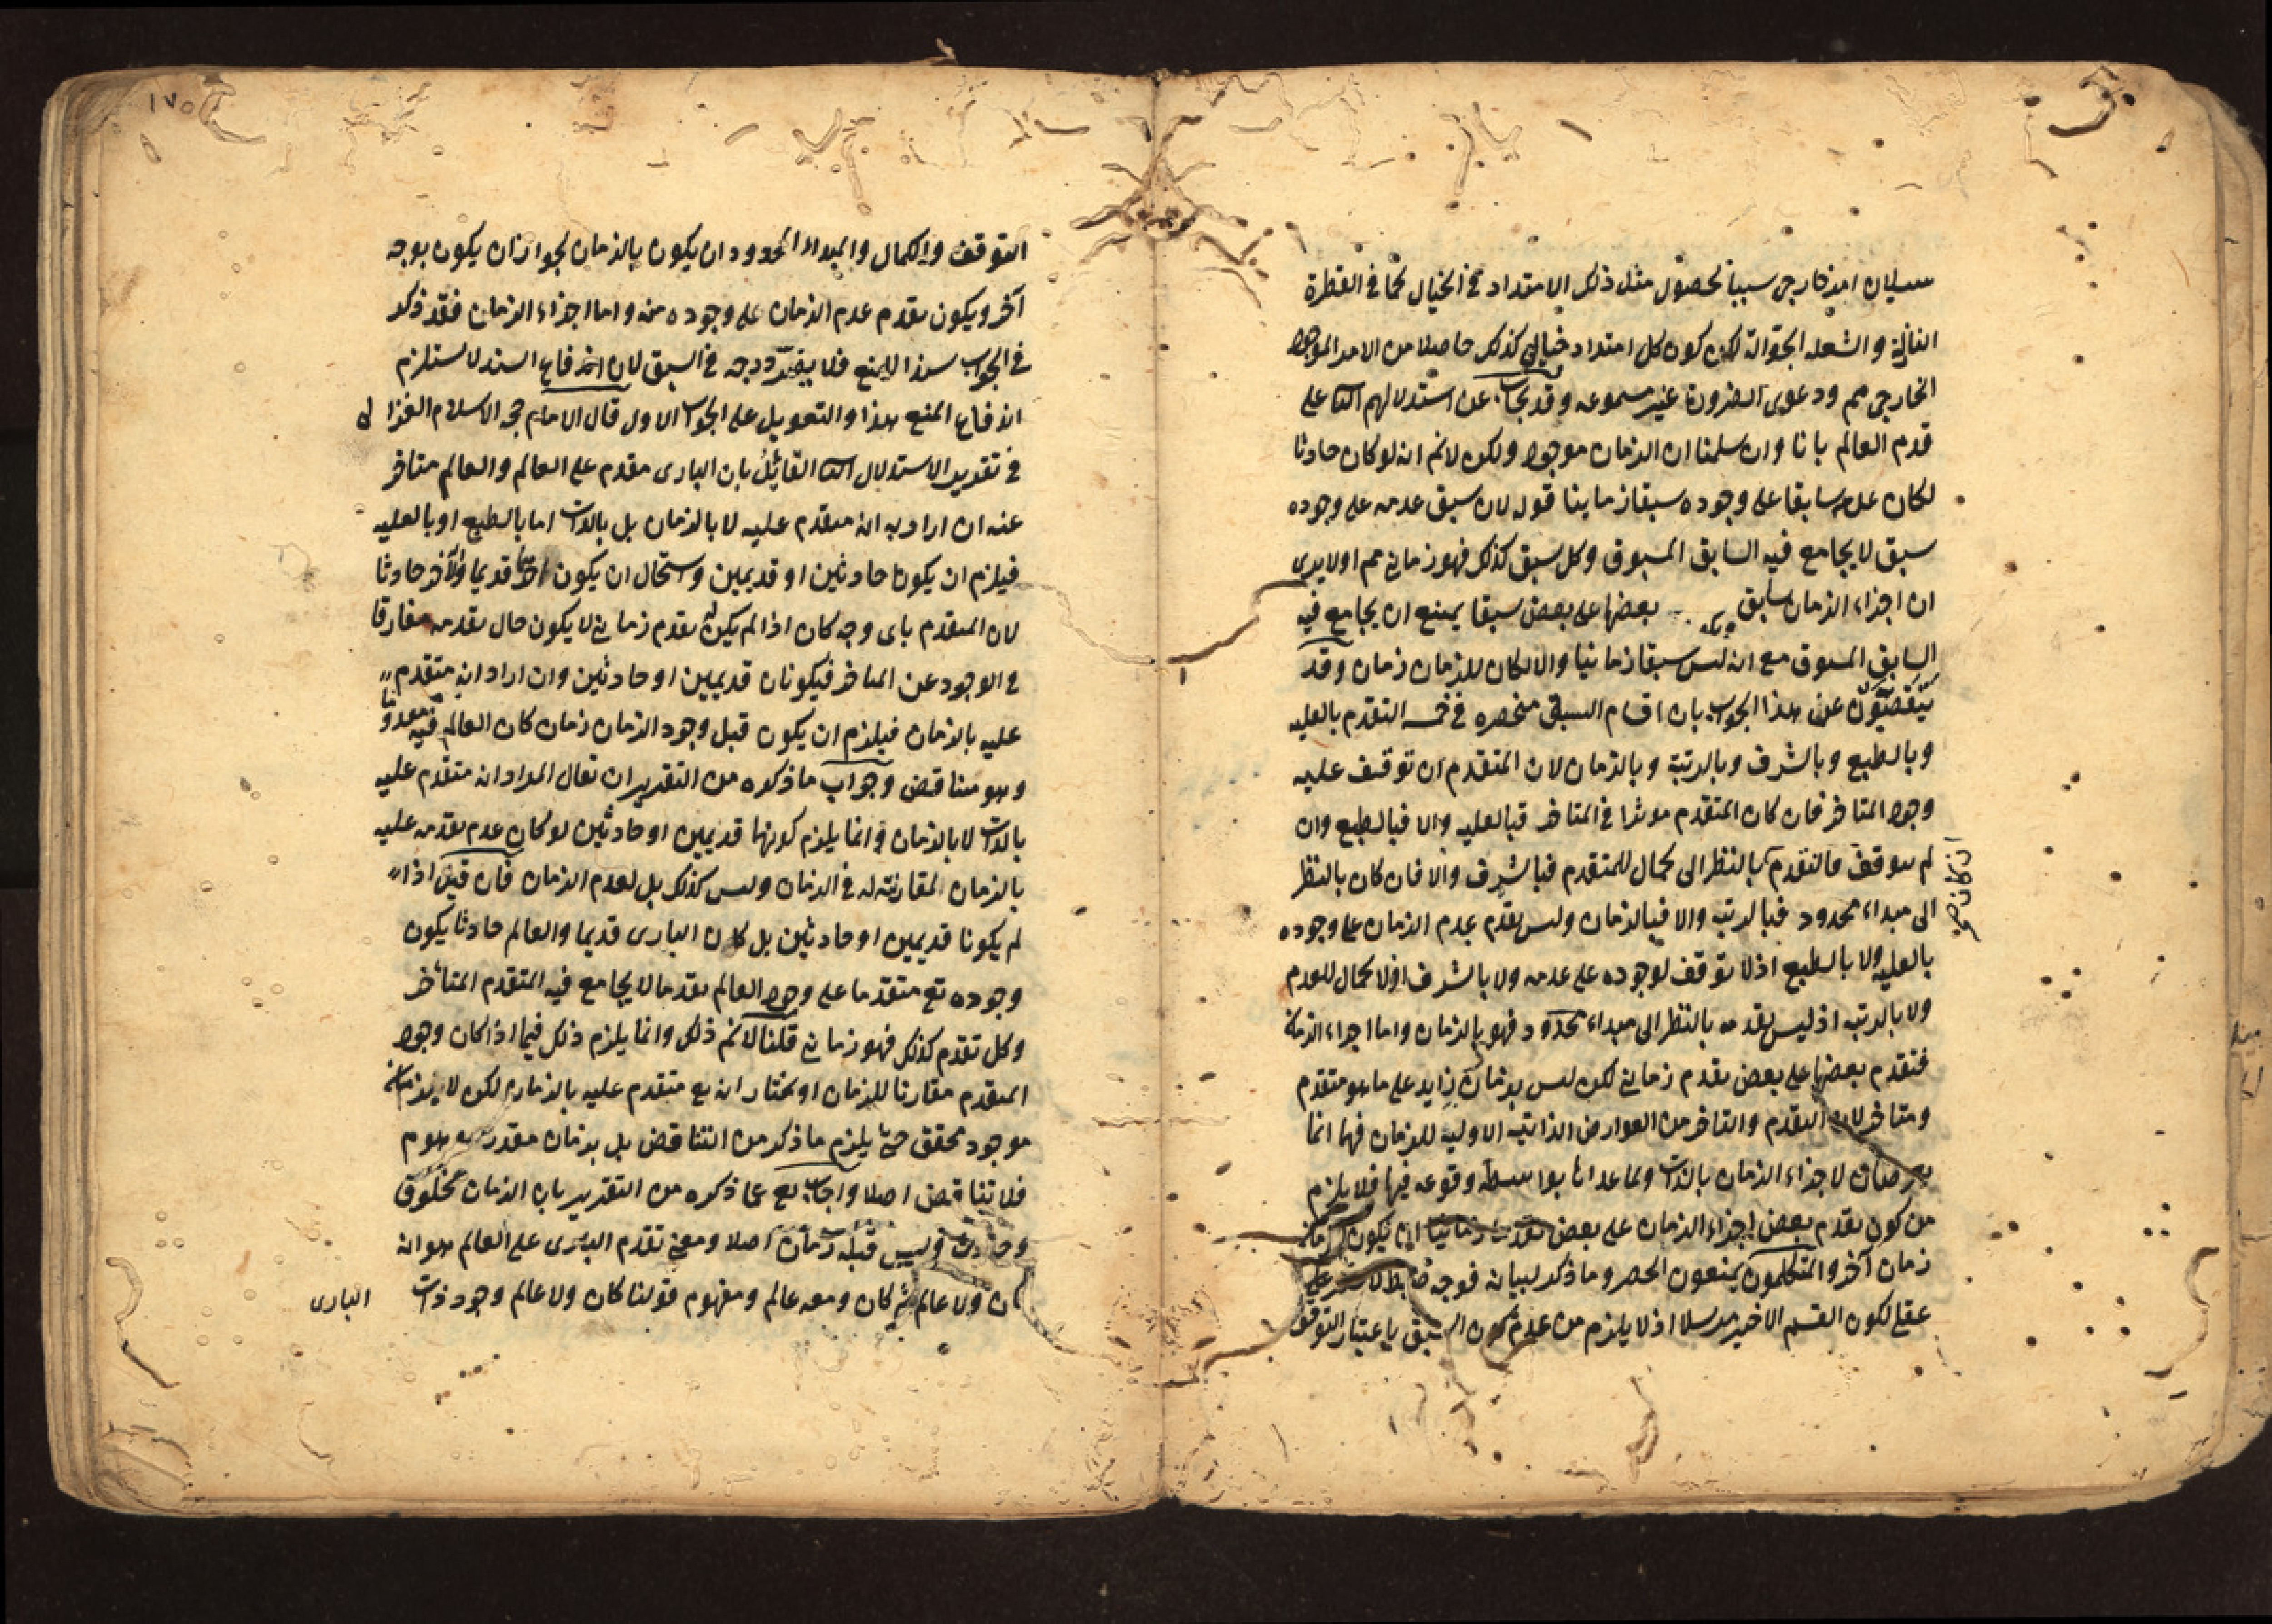 سيلان امر خارجى سببا لحصول مثل ذلك الامتداد فى الخيال كما فى القطرة
النازلة والشعلة الجوالة لكن كون كل امتداد خيالى كذلك حاصلا من الامر الموجود
الخارجى مم ودعوى الضرورة غير مسموعه وقد يجاب عن استدلالهم الثا على
قدم العالم بانا وان سلمنا ان الزمان موجود ولكن لانم انه لو كان حادثا
لكان عدمه سابقا على وجوده سبقا زمانيا قوله لان سبق عدمه على وجوده
سبق لا يجامع فيه السابق المسبوق وكل سبق كذلك فهو زمانى مم اولا يرى
ان اجزاء الزمان سابق بعضها على بعض سبقا يمنع ان يجامع فيه
السابق المسبوق مع انه ليس سبقا زمانيا والا لكان للزمان زمان وقد
يتفصون عن هذا الجواب بان اقسام السبق منحصره فى خمسه التقدم بالعليه
وبالطبع وبالشرف وبالرتبة وبالزمان لان المتقدم ان توقف عليه
وجود المتاخر فان كان المتقدم موثرا فى المتاخر فبالعليه والا فبالطبع وان
لم يتوقف فالتقدم بالنظر الى كمال للمتقدم فبالشرف والا فان كان بالنظر
ان كان صح
الى مبداء محدود فبالرتبه والا فبالزمان وليس تقدم عدم الزمان على وجوده
بالعليه ولا بالطبع اذ لا توقف لوجوده على عدمه ولا بالشرف اذ لا كمال للعدم
ولا بالرتبه اذ ليس تقدمه بالنظر الى مبداء محدود فهو بالزمان واما اجزاء الزمان
فتقدم بعضها على بعض تقدم زمانى لكن ليس بزمان زايد على ما هو متقدم
ومتاخر لان التقدم والتاخر من العوارض الذاتيه الاوليه للزمان فهما انما
يعرضان لاجزاء الزمان بالذات ولما عداها بواسطة وقوعه فيها فلا يلزم
من كون تقدم بعض اجزاء الزمان على بعض تقدما زمانيا ان يكون للزمان
زمان آخر والمتكلمون يمنعون الحصر وما ذكر لبيانه فوجه ضابط لا
عقلى لكون القسم الاخير مرسلا اذ لا يلزم من عدم كون السبق باعتبار التوقف
١٧٥
التوقف والكمال والمبداء المحدود ان يكون بالزمان لجواز ان يكون بوجه
آخر ويكون تقدم عدم الزمان على وجوده منه واما اجزاء الزمان فقد ذكر
فى الجواب سندا للمنع فلا يقدح درجه فى السبق لان اندفاع السند لا يستلزم
اندفاع المنع هذا والتعويل على الجواب الاول قال الامام حجه الاسلام الغزالى
فى تقدير الاستدلال الثا القائل بان البارى مقدم على العالم والعالم متاخر
عنه ان اراد به انه متقدم عليه لا بالزمان بل بالذات اما بالطبع او بالعليه
فيلزم ان يكونا حادثين او قديمين واستحال ان يكون احدهما قديما والآخر حادثا
لان المتقدم باى وجه كان اذا لم يكن له تقدم زمانى لا يكون حال تقدمه مفارقا
فى الوجود عن المتاخر فيكونان قديمين او حادثين وان اراد انه متقدم
عليه بالزمان فيلزم ان يكون قبل وجود الزمان زمان كان العالم فيه معدوما
وهو متناقض وجواب ما ذكره من التقرير ان يقال المراد انه متقدم عليه
بالذات لا بالزمان وانما يلزم كونهما قديمين او حادثين لو كان عدم تقدمه عليه
بالزمان لمقارنته له فى الزمان وليس كذلك بل لعدم الزمان فان قيل اذا
لم يكونا قديمين او حادثين بل كان البارى قديما والعالم حادثا يكون
وجوده تع متقدما على وجود العالم تقدما لا يجامع فيه المتقدم المتأخر
وكل تقدم كذلك فهو زمانى قلنا لانم ذلك وانما يلزم ذلك فيما اذا كان وجود
المتقدم مقارنا للزمان او نختار انه تع متقدم عليه بالزمان لكن لا بزمان
موجود محقق حتى يلزم ما ذكر من التناقض بل بزمان مقدر موهوم
فلا تناقض اصلا واجاب تع عما ذكره من التقرير بان الزمان مخلوق
وحادث وليس قبله زمان اصلا ومعنى تقدم البارى على العالم هو انه
كان ولا عالم ثم كان ومعه عالم ومفهوم قولنا كان ولا عالم وجود ذات
البارى